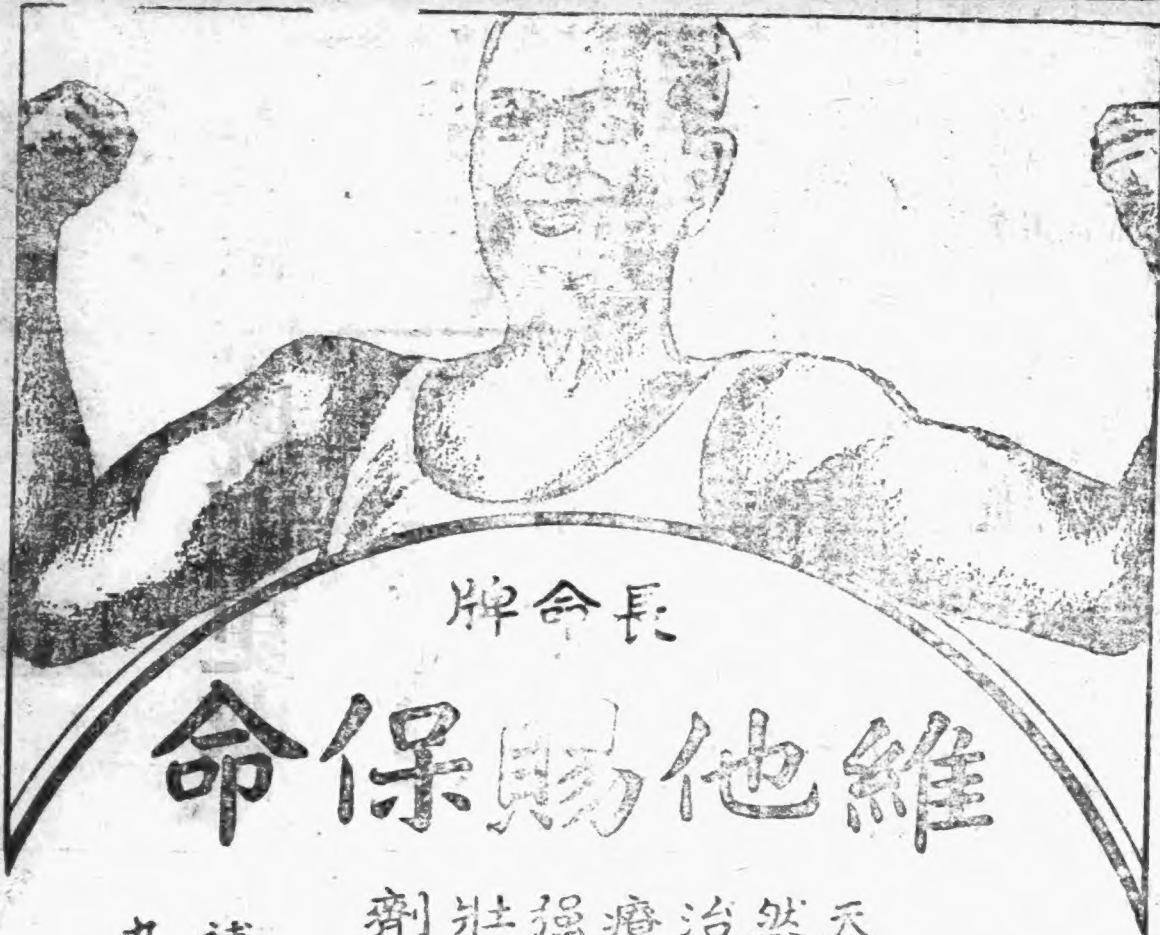 長命牌
維他賜保命
天然治療強壯劑